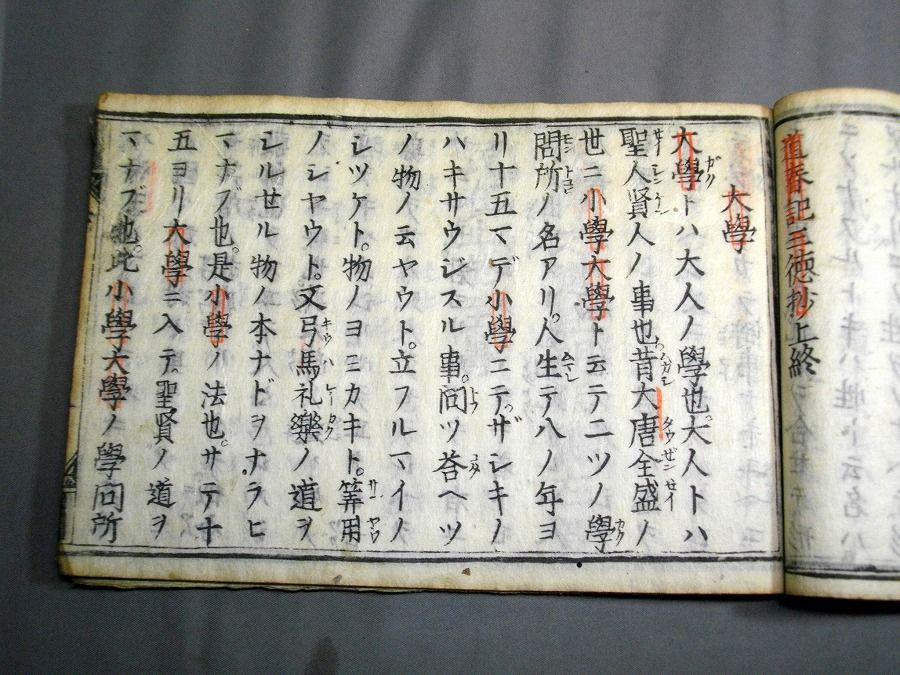 道春記三徳抄上終
大學
大學トハ大人ノ學也。大人トハ
聖人賢人ノ事也昔大唐全盛ノ
世ニ小學大學ト云テ二ツノ學
問所ノ名アリ。人生テ八ノ年ヨ
リ十五マデ小學ニテ。ザシキノ
ハキサウジスル事。問ツ答ヘツ
ノ物ノ云ヤウト。立フルマイノ
シツケト。物ノヨミカキト。筭用
ノシヤウト。文弓馬礼樂ノ道ヲ
シルせル物ノ本ナドヲナラヒ
マナブ也。是小學ノ法也。サテ十
五ヨリ大學ニ入テ。聖賢ノ道ヲ
マナブ也。此小學大學ノ學问所